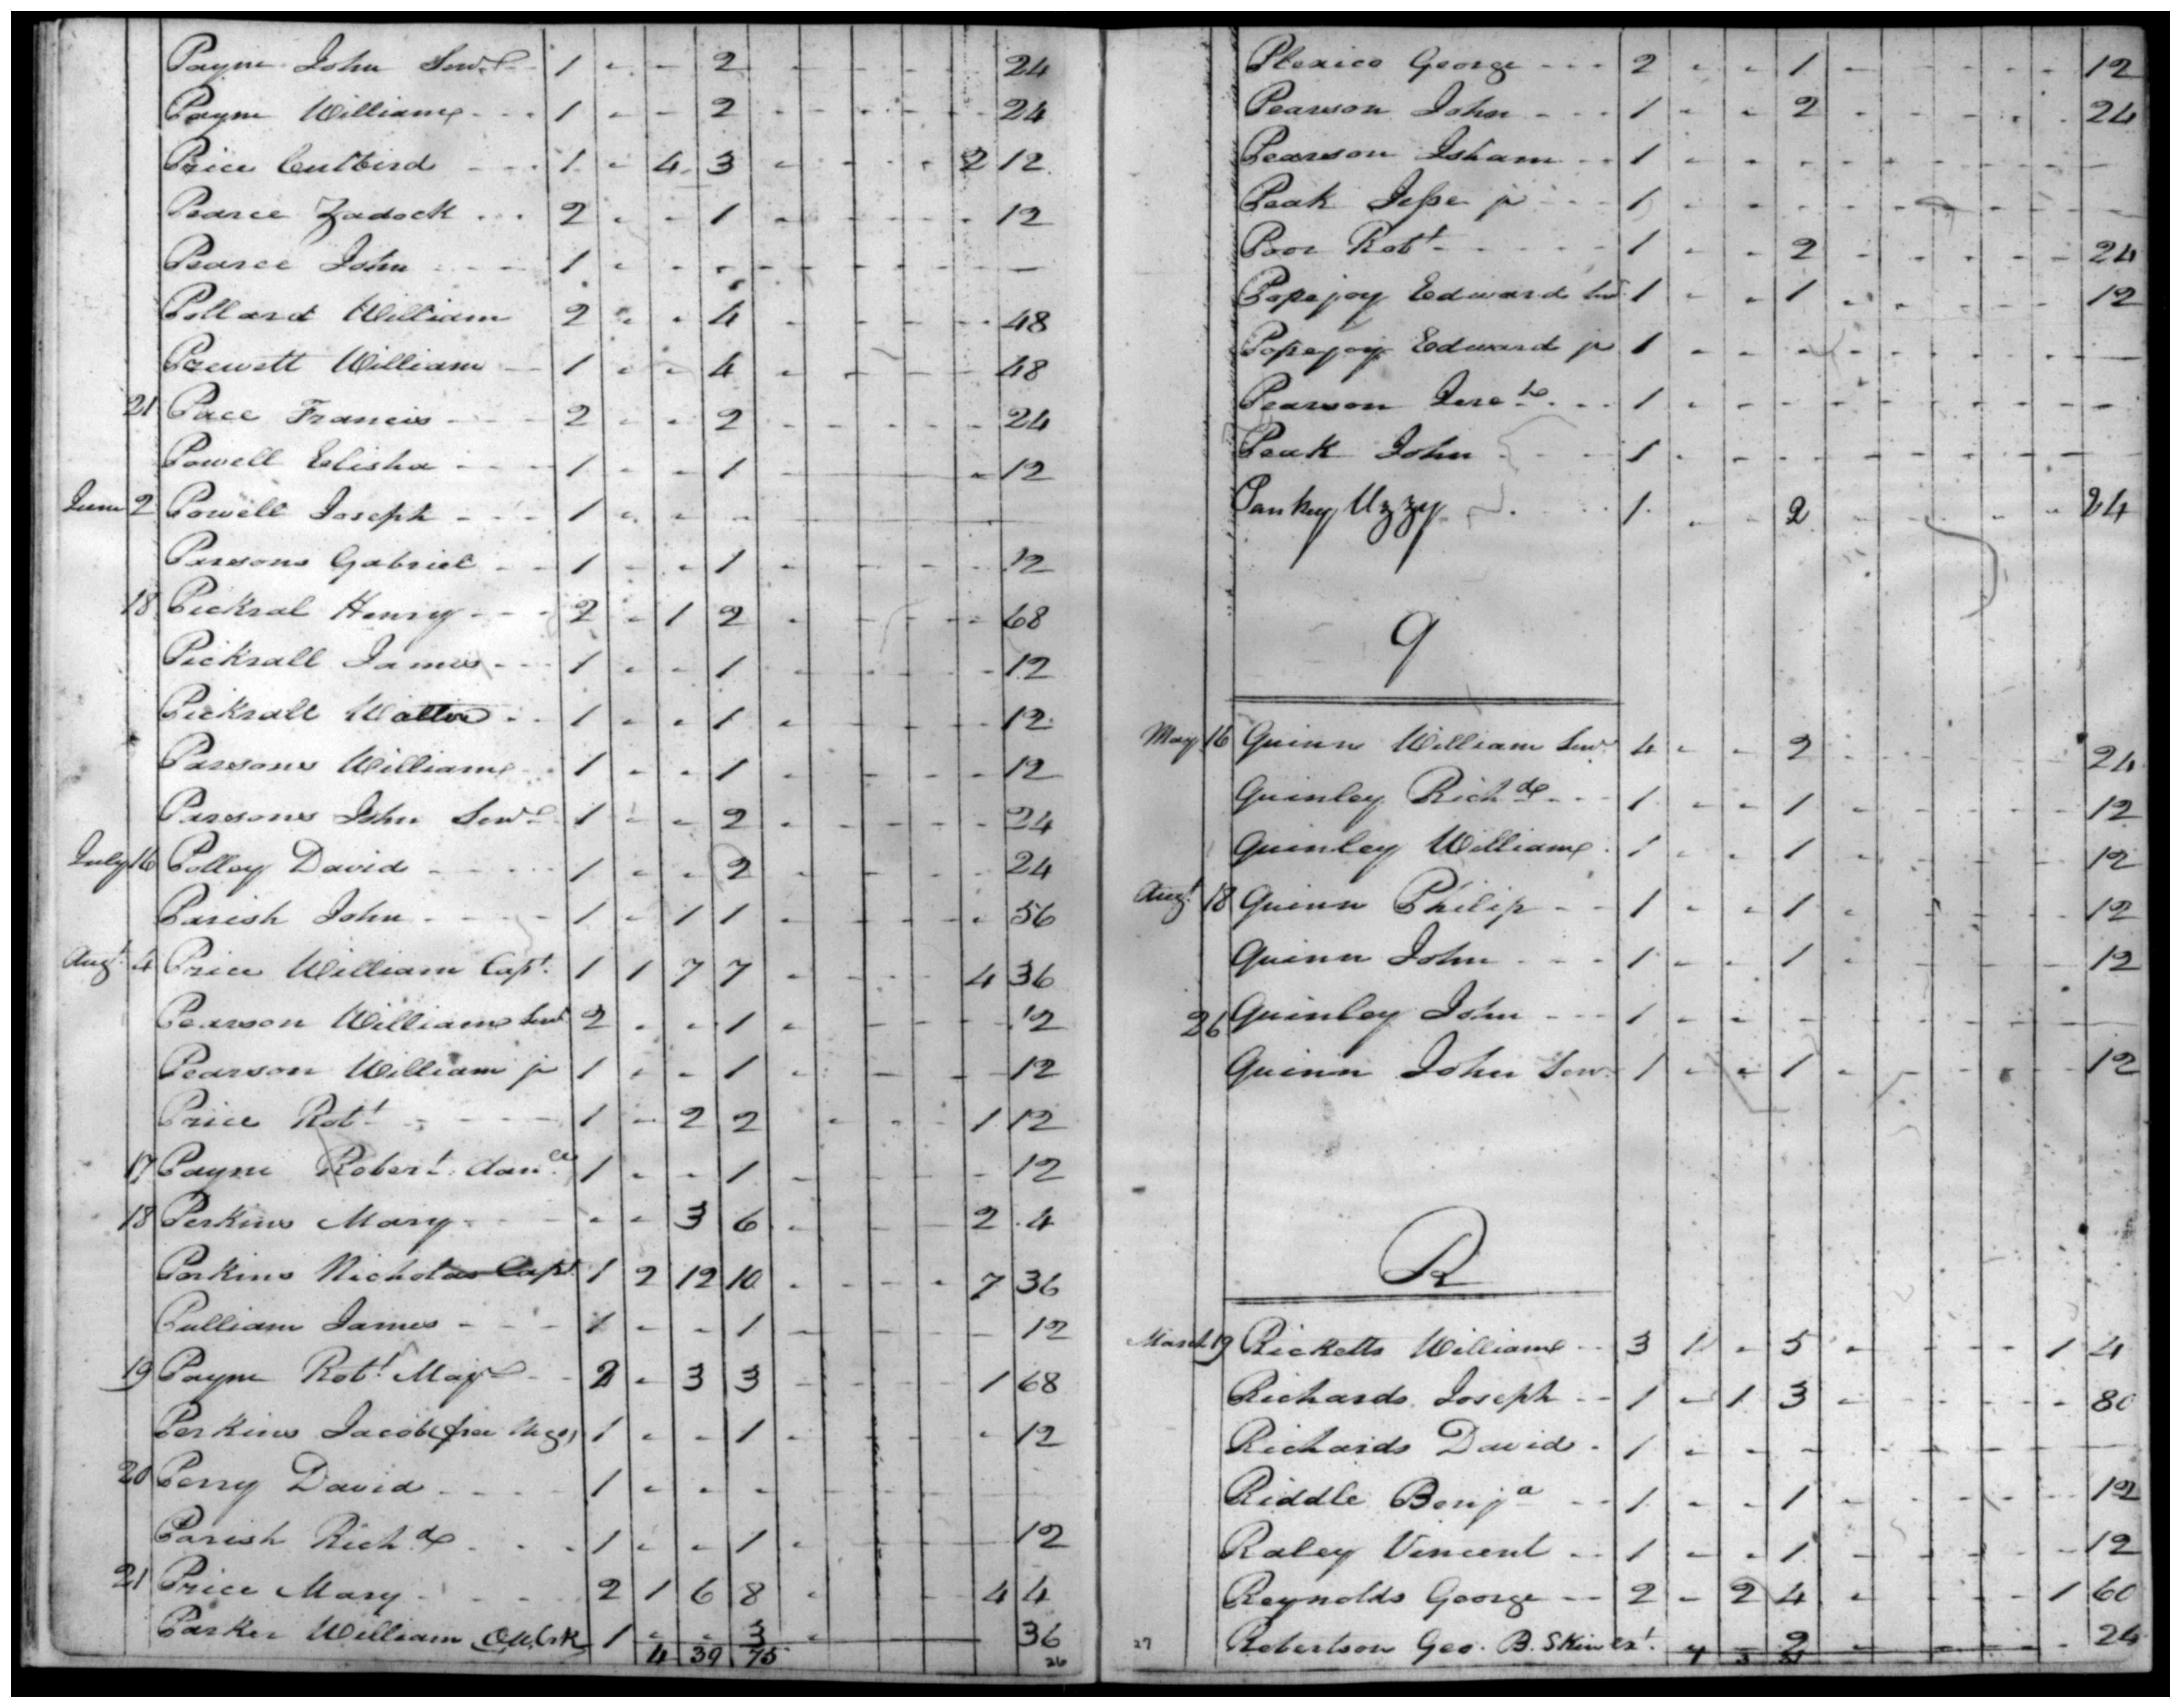 Payne John Senr 1 - - 2 - - - - 24
Payne William 1 - - 2 - - - - 24
Price Cutbird 1 - 4 3 - - - 2 12
Pearce Zadock 2 - - 1 - - - - 12
Pearce John 1 - - - - - - - —
Pollard William 2 - - 4 - - - - 48
Prewett William 1 - - 4 - - - - 48
21 Pace Francis 2 - - 2 - - - - 24
Powell Elisha 1 - - 1 - - - - 12
June 2 Powell Joseph 1 - - - —
Parsons Gabriel 1 - - 1 - - - - 12
18 Pickral Henry 2 - 1 2 - - - - 68
Pickrall James 1 - - 1 - - - - 12
Pickrall Walter 1 - - 1 - - - - 12
Parsons William 1 - - 1 - - - - 12
Parsons John Senr 1 - - 2 - - - - 24
July 16 Polley David 1 - - 2 - - - - 24
Parish John 1 - 1 1 - - - - 56
Augt 4 Price William Capt. 1 1 7 7 - - - 4 36
Pearson William Senr 2 - - 1 - - - - 12
Pearson William jr 1 - - 1 - - - - 12
Price Robt 1 - 2 2 - - - 1 12
17 Payne Robert 1 - - 1 - - - - 12
18 Perkins Mary - - 3 6 - - - 2 4
Perkins Nicholas Capt 1 2 12 10 - - - 7 36
Pulliam James 1 - - 1 - - - - 12
19 Payne Robt Majr 2 - 3 3 - - - 1 68
Perkins Jacob (free Nego) 1 - - 1 - - - - 12
20 Perry David 1 - - -
Parish Richd 1 - - 1 - - - - 12
21 Price Mary 2 1 6 8 - - - 4 4
Parker William 1 - - 3 - 36
4 39 75 26
Plexico George 2 - - 1 - - - - - 12
Pearson John 1 - - 2 - - - - - 24
Pearson Isham 1 - - - - - - - - —
Peak Jesse jr 1 - - - - - - - - —
Poor Robt 1 - - 2 - - - - - 24
Popejoy Edward Senr 1 - - 1 - - - - - 12
Popejoy Edward jr 1 - - - - - - - - —
Pearson 1 - - - - - - - - —
Peak John 1 - - - - - - - - —
Pankey Uzzy 1 - - 2 - - - - - 24
Q
May 16 Quinn William Senr 4 - - 2 - - - - - 24
Quinley Richd 1 - - 1 - - - - - 12
Quinley William 1 - - 1 - - - - - 12
Augt 18 Quinn Philip 1 - - 1 - - - - - 12
Quinn John 1 - - 1 - - - - - 12
26 Quinley John 1 - - - - - - - - —
Quinn John Senr 1 - - 1 - - - - - 12
R
March 19 Ricketts William 3 1 - 5 - - - - 1 4
Richards Joseph 1 - 1 3 - - - - - 80
Richards David 1 - - - - - - - - —
Riddle Benja 1 - - 1 - - - - - 12
Raley Vincent 1 - - 1 - - - - - 12
Reynolds George 2 - 2 4 - - - - 1 60
27 Robertson Geo. B. Skin 2 - - - 24